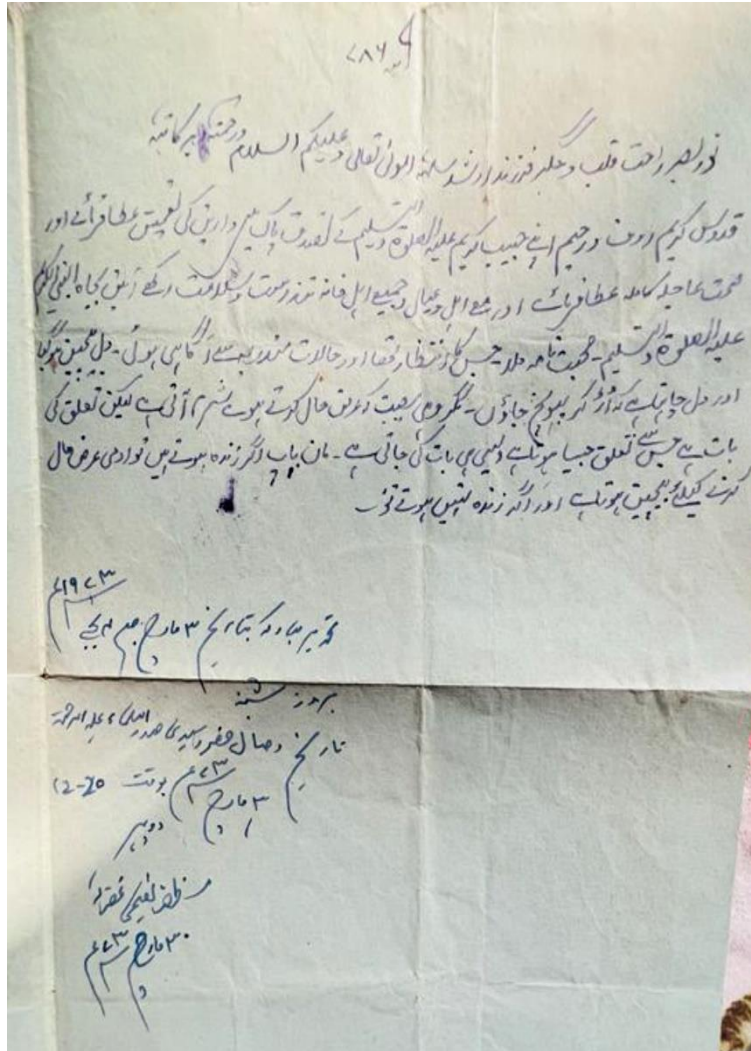 ۷۸۶
نور البصر راحت قلب و جگر فرزند ارشد سلمہ المولیٰ تعالیٰ وعلیکم السلام ورحمتہ وبرکاتہ
قدوس کریم رؤف ورحیم اپنے حبیب کریم علیہ الصلوٰۃ والتسلیم کے تصدق پاک میں دارین کی نعمتیں عطا فرمائے اور
صحت عاجلہ کاملہ عطا فرمائے اور مع اہل وعیال وجمیع اہل خانہ تندرست وسلامت رکھے آمین بجاہ النبی الکریم
علیہ الصلوٰۃ والتسلیم۔ محبت نامہ ملا۔ جس کا انتظار تھا اور حالات مندرجہ سے آگاہی ہوئی۔ دل بیچین ہوگیا
اور دل چاہتا ہے کہ اُڑ کر پہونچ جاؤں۔ مگر وہی کو عرض حال کرتے ہوئے شرم آتی ہے لیکن تعلق کی
بات ہے جس سے تعلق جیسا ہوتا ہے ویسی ہی بات کی جاتی ہے۔ ماں باپ اگر زندہ ہوتے ہیں تو آدمی عرض حال
کرنے کیلئے بیچین ہوتا ہے اور اگر زندہ نہیں ہوتے تو
تحریر مبارکہ بتاریخ ۳ مارچ ۱۹۷۳ء
بروز شنبہ
تاریخ وصال حضور سیدی صدر العلماء علیہ الرحمۃ
۳ مارچ ۷۳ء بوقت 12-20
دوپہر
نعیمی غفرلہ
۳۰ مارچ ۷۳ء